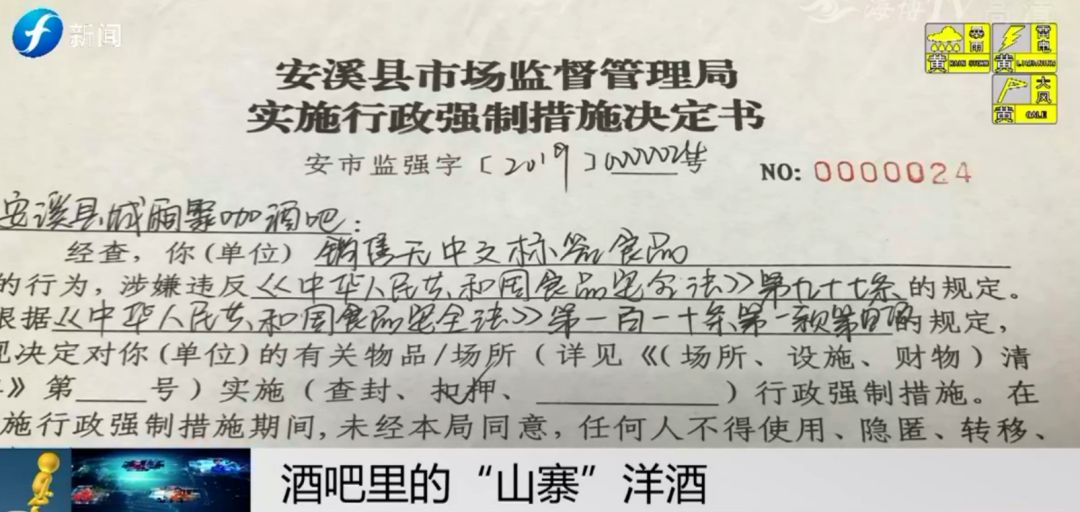 新闻
海博TV 高清
雷雨 雷电
黄 RAIN STORM 黄
大风
黄 GALE
安溪县市场监督管理局
实施行政强制措施决定书
安市监强字〔2019〕0000024号 NO: 0000024
安溪县城厢聚咖酒吧:
经查,你(单位) 销售无中文标签食品
的行为,涉嫌违反《中华人民共和国食品安全法》第九十七条的规定。
根据《中华人民共和国食品安全法》第一百一十条第一款第四项的规定,
现决定对你(单位)的有关物品/场所(详见《(场所、设施、财物)清
》第____号)实施(查封、扣押、________)行政强制措施。在
施行政强制措施期间,未经本局同意,任何人不得使用、隐匿、转移、
酒吧里的“山寨”洋酒